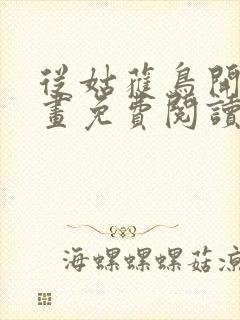 從姑獲鳥開
畫免費閱讀
海螺螺螺菇涼